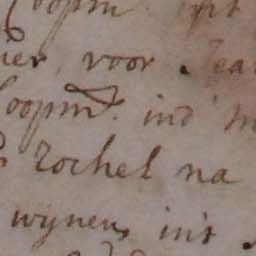 Coopm
ier voor Jea
Coopm. ind
Rochel na
wijnen, in't